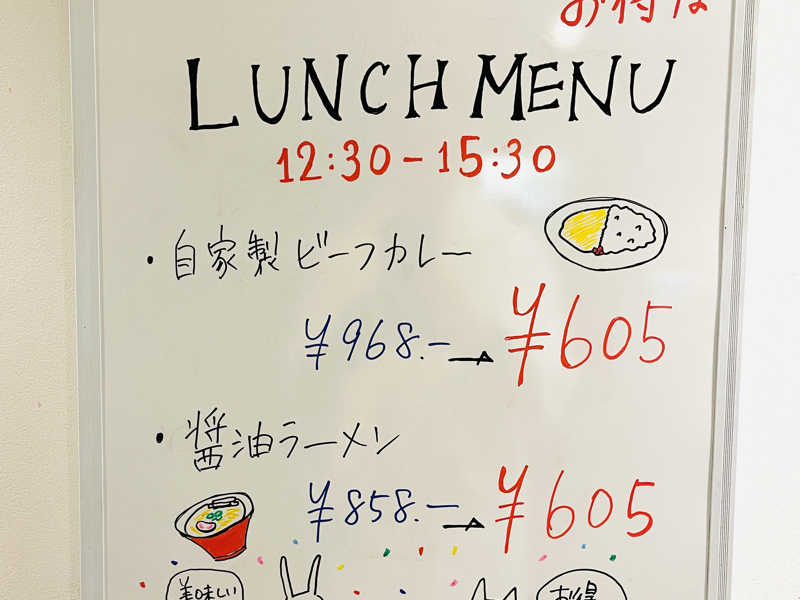 お得な
LUNCH MENU
12:30-15:30
・自家製ビーフカレー
¥968.-→¥605
・醤油ラーメン
¥858.-→¥605
美味しい
お得